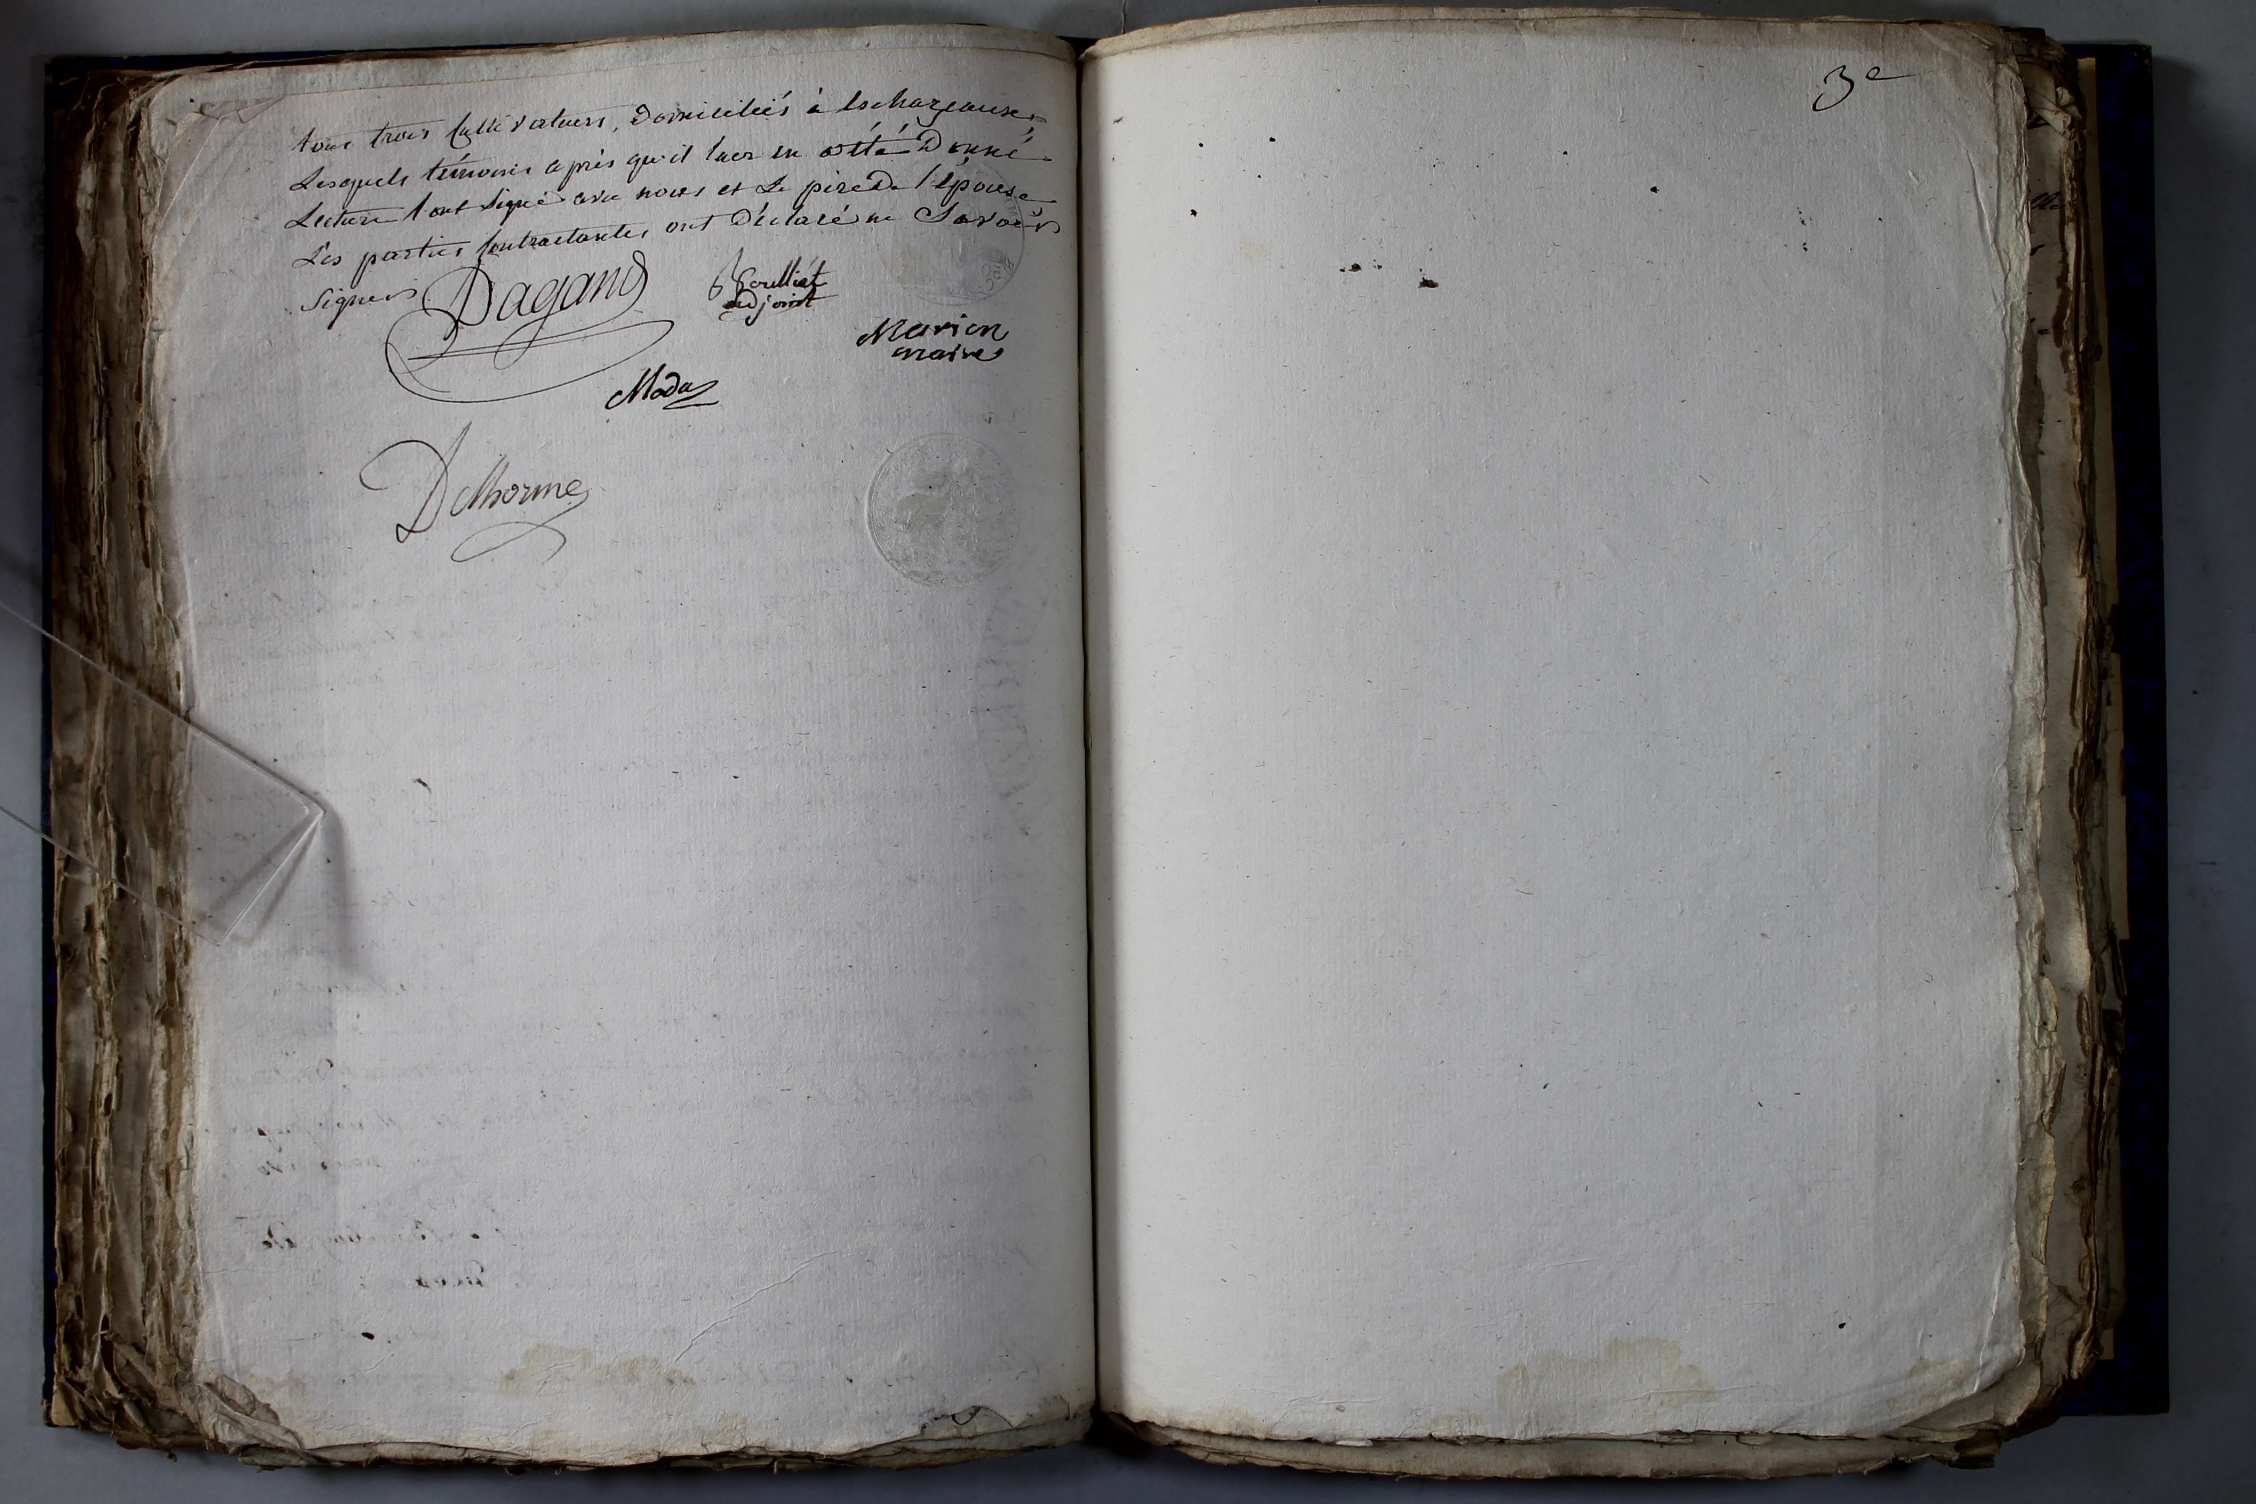 tous trois Cultivateurs, domiciliés à Eschazeaux
Lesquels témoins après qu'il leur en a été Donné
Lecture l'ont signé avec nous et Le père de l'épouse
Les parties Contractantes ont Déclaré ne Savoir
Signer
Dagand
adjoint
Marion
maire
Delhorme
3e